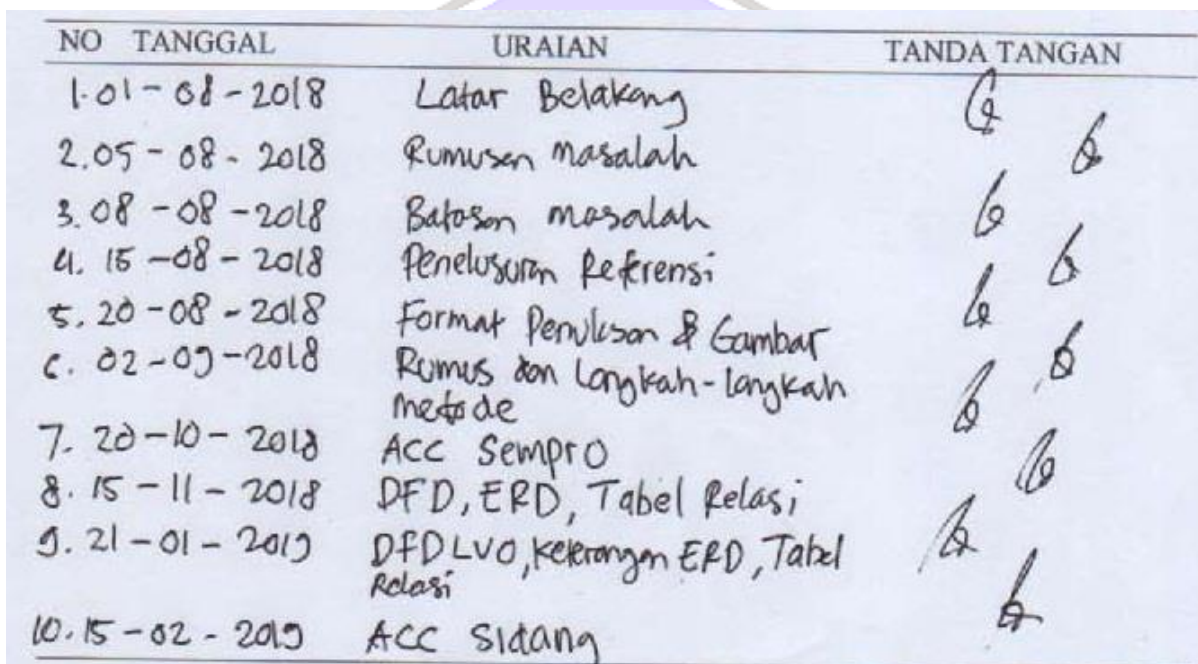 NO TANGGAL URAIAN TANDA TANGAN
1. 01-08-2018 Latar Belakang
2. 05-08-2018 Rumusan masalah
3. 08-08-2018 Batasan masalah
4. 15-08-2018 Penelusuran Referensi
5. 20-08-2018 Format Penulisan & Gambar
6. 02-09-2018 Rumus dan Langkah-langkah
metode
7. 20-10-2018 ACC Sempro
8. 15-11-2018 DFD, ERD, Tabel Relasi
9. 21-01-2019 DFD LV0, Keterangan ERD, Tabel
Relasi
10. 15-02-2019 ACC Sidang